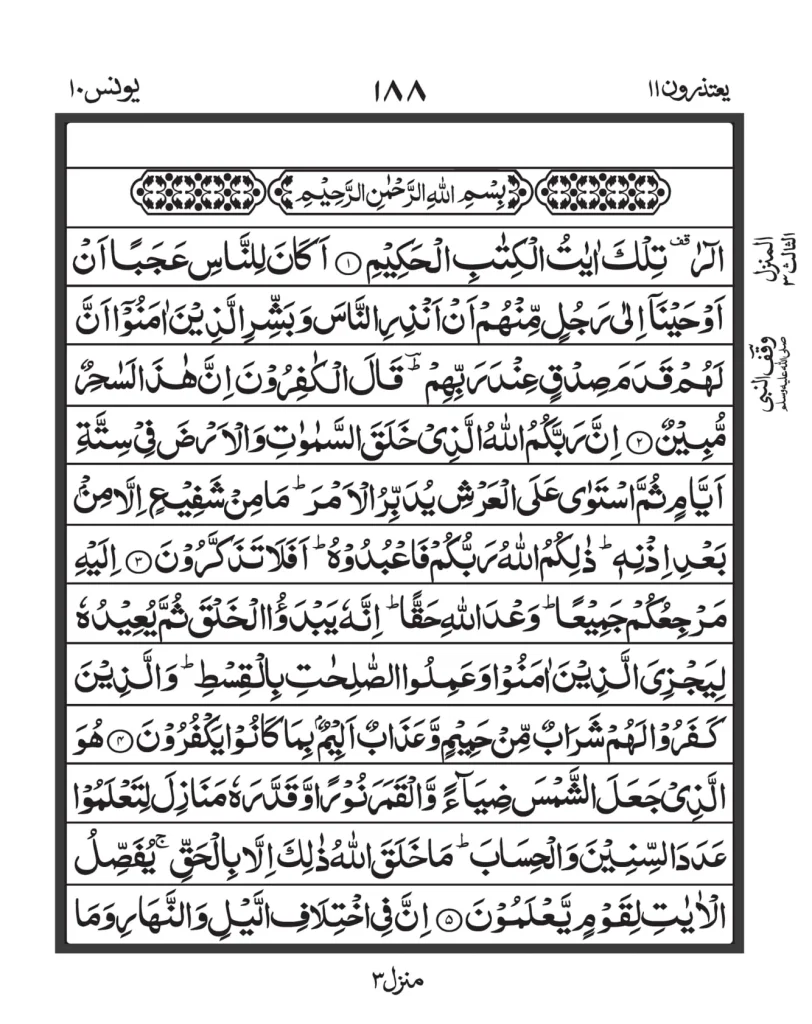 یعتذرون ۱۱
۱۸۸
یونس ۱۰
بِسْمِ اللهِ الرَّحْمٰنِ الرَّحِيْمِ
الٓرٰ ۫ قف تِلْكَ اٰيٰتُ الْكِتٰبِ الْحَكِيْمِ ۱ اَكَانَ لِلنَّاسِ عَجَبًا اَنْ
اَوْحَيْنَاۤ اِلٰى رَجُلٍ مِّنْهُمْ اَنْ اَنْذِرِ النَّاسَ وَبَشِّرِ الَّذِيْنَ اٰمَنُوْۤا اَنَّ
لَهُمْ قَدَمَ صِدْقٍ عِنْدَ رَبِّهِمْ ؕ قَالَ الْكٰفِرُوْنَ اِنَّ هٰذَا لَسٰحِرٌ
مُّبِيْنٌ ۲ اِنَّ رَبَّكُمُ اللهُ الَّذِيْ خَلَقَ السَّمٰوٰتِ وَالْاَرْضَ فِيْ سِتَّةِ
اَيَّامٍ ثُمَّ اسْتَوٰى عَلَى الْعَرْشِ يُدَبِّرُ الْاَمْرَ ؕ مَا مِنْ شَفِيْعٍ اِلَّا مِنْۢ
بَعْدِ اِذْنِهٖ ؕ ذٰلِكُمُ اللهُ رَبُّكُمْ فَاعْبُدُوْهُ ؕ اَفَلَا تَذَكَّرُوْنَ ۳ اِلَيْهِ
مَرْجِعُكُمْ جَمِيْعًا ؕ وَعْدَ اللهِ حَقًّا ؕ اِنَّهٗ يَبْدَؤُا الْخَلْقَ ثُمَّ يُعِيْدُهٗ
لِيَجْزِيَ الَّذِيْنَ اٰمَنُوْا وَعَمِلُوا الصّٰلِحٰتِ بِالْقِسْطِ ؕ وَالَّذِيْنَ
كَفَرُوْا لَهُمْ شَرَابٌ مِّنْ حَمِيْمٍ وَّعَذَابٌ اَلِيْمٌۢ بِمَا كَانُوْا يَكْفُرُوْنَ ۴ هُوَ
الَّذِيْ جَعَلَ الشَّمْسَ ضِيَآءً وَّالْقَمَرَ نُوْرًا وَّقَدَّرَهٗ مَنَازِلَ لِتَعْلَمُوْا
عَدَدَ السِّنِيْنَ وَالْحِسَابَ ؕ مَا خَلَقَ اللهُ ذٰلِكَ اِلَّا بِالْحَقِّ ۚ يُفَصِّلُ
الْاٰيٰتِ لِقَوْمٍ يَّعْلَمُوْنَ ۵ اِنَّ فِي اخْتِلَافِ الَّيْلِ وَالنَّهَارِ وَمَا
المنزل
الثالث ۳
وقف النبی
صلی اللہ علیہ وسلم
منزل ۳